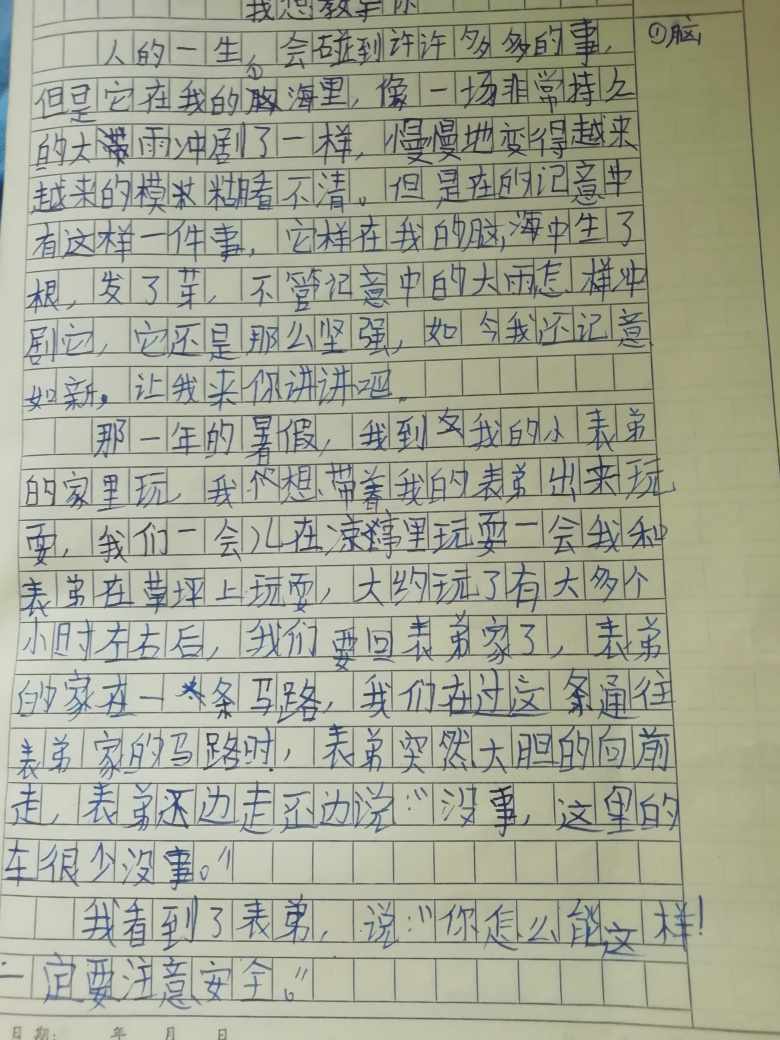 我想教导你
人的一生,会碰到许许多多的事,
①脑
但是它在我的①胸海里,像一场非常持久
的大暴雨冲剧了一样,慢慢地变得越来
越来的模糊看不清。但是在的记意中
有这样一件事,它样在我的脑海中生了
根,发了芽,不管记意中的大雨怎样冲
剧它,它还是那么坚强,如今我还记意
如新。让我来你讲讲吧。
那一年的暑假,我到我的小表弟
的家里玩,我想带着我的表弟出来玩
耍,我们一会儿在凉亭里玩耍一会我和
表弟在草坪上玩耍,大约玩了有大多个
小时左右后,我们要回表弟家了,表弟
的家在一条马路,我们在过这条通往
表弟家的马路时,表弟突然大胆的向前
走,表弟还边走还边说:“没事,这里的
车很少没事。”
我看到了表弟,说:“你怎么能这样!
一定要注意安全。”
日期: 年 月 日